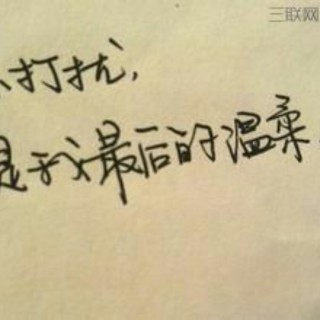 三联网
不打扰，
是我最后的温柔